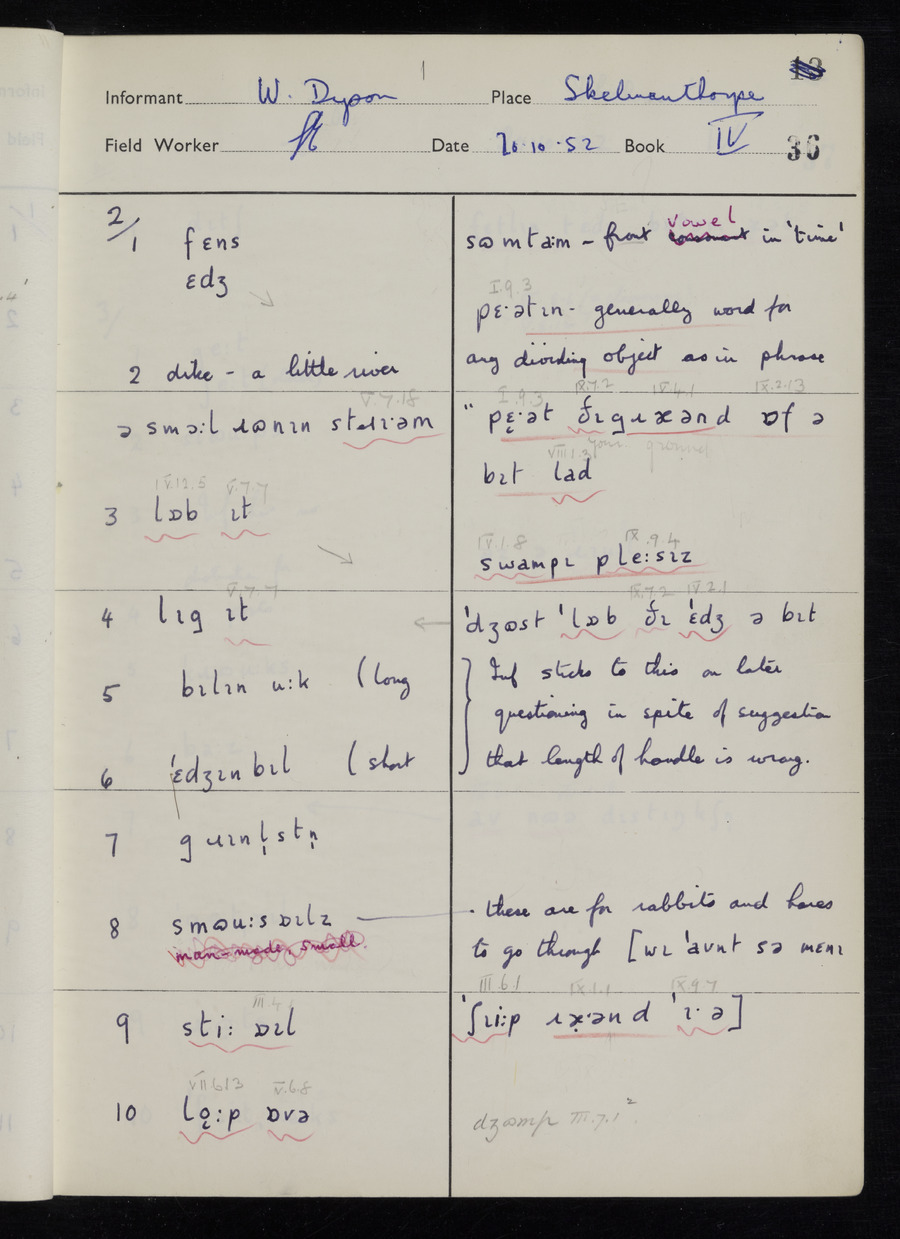 13
Informant W. Dyson Place Skelmanthorpe
Field Worker Date 20.10.52 Book IV 36
2/
1 fɛns
ɛdʒ
2 dike - a little river
V.7.18
ə smɔ:l ɹɷnɪn stɹi:əm
IV.12.5 V.7.7
3 lɒb ɪt
V.7.7
4 lɪg ɪt
5 bɪlɪn u:k (long
6 'ɛdʒɪn bɪl (short
7 guɪnl̩stn̩
8 smɷu:s ɒɪlz
man-made, small.
III.4.1
9 sti: ɒɪl
VII.6.13 V.6.8
10 lo̜:p ɒvə
sɷmtaɪm - front vowel consonant in 'time'
I.9.3
pɛ·ətɪn - generally word for
any dividing object as in phrase
I.9.3 IX.7.2 IV.4.1 IX.2.13
" pɛ̜·ət ðɪ gɹæənd ɒf ə
VIII.1.3 your ground
bɪt lad
IV.1.8 IX.9.4
swampɪ ple:sɪz
IX.7.2 IV.2.1
'dʒɷst 'lɒb ðɪ 'ɛdʒ ə bɪt
Inf sticks to this on later
questioning in spite of suggestion
that length of handle is wrong.
- these are for rabbits and hares
to go through [wɪ 'avnt sə mɛnɪ
III.6.1 IX.1.1 IX.9.7
'ʃɪi:p ɹæ·ənd 'ɪ·ə]
dʒɷmp III.7.1²